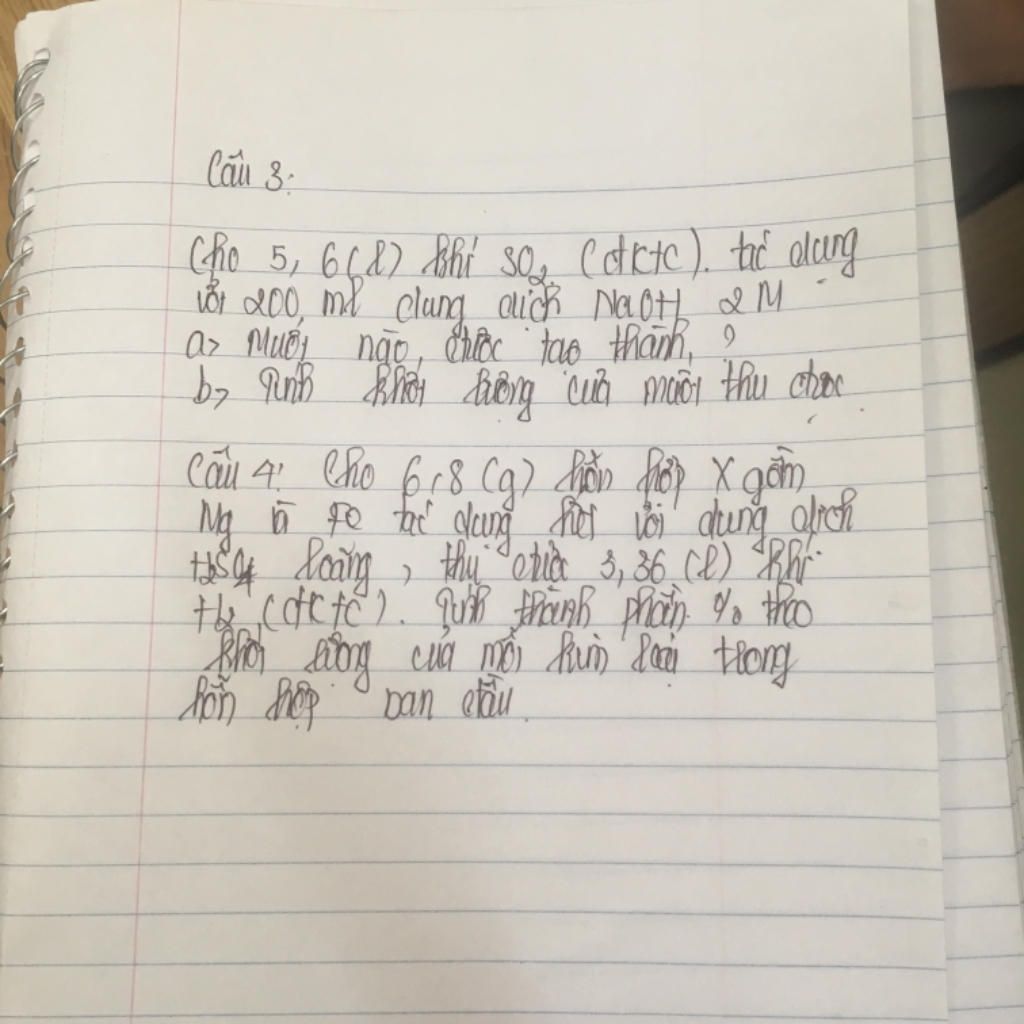 Câu 3:
Cho 5,6(l) khí SO2 (đktc). tác dụng
với 200 ml dung dịch NaOH 2M
a> Muối nào được tạo thành ?
b> Tính khối lượng của muối thu được
Câu 4: Cho 6,8 (g) hỗn hợp X gồm
Mg và Fe tác dụng hết với dung dịch
H2SO4 loãng, thu được 3,36 (l) khí
H2 (đktc). Tính thành phần % theo
khối lượng của mỗi kim loại trong
hỗn hợp ban đầu.